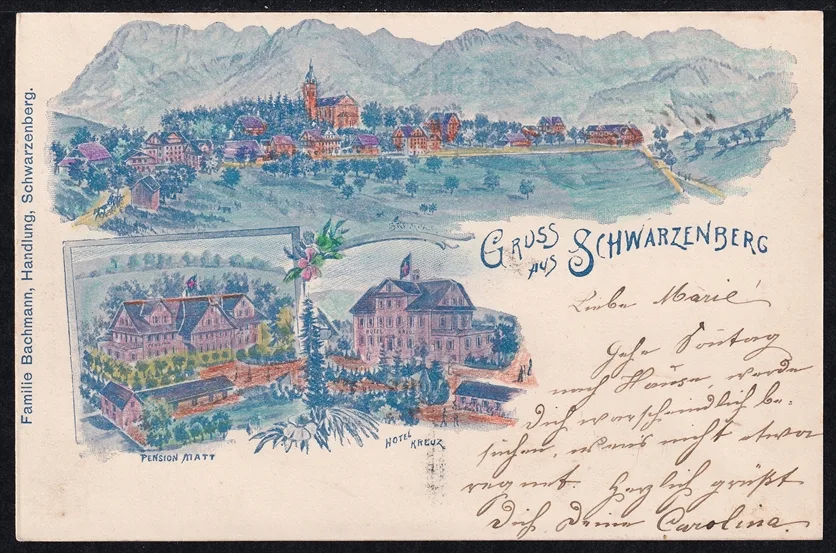 Familie Bachmann, Handlung, Schwarzenberg.
GRUSS
AUS SCHWARZENBERG
PENSION MATT
HOTEL
KREUZ
Liebe Marie!
Gehe Sontag
nach Hause, werde
Dich warscheindlich be-
suchen, wens nicht etwa
regnet. Herzlich grüßt
Dich Deine Carolina.